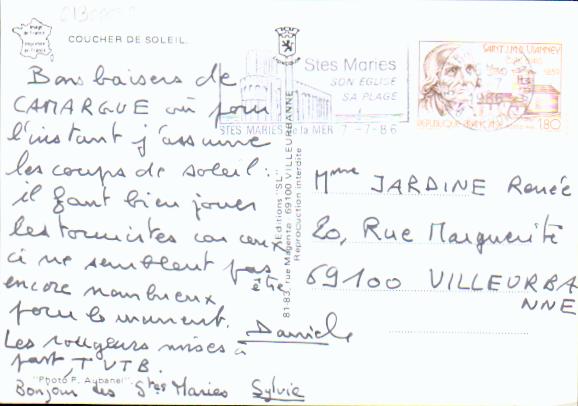 Image
de France
Imprimée
en France
COUCHER DE SOLEIL.
Bons baisers de
CAMARGUE où pour
l'instant j'assume
les coups de soleil :
il faut bien jouer
les touristes car ceux
ci ne semblent pas être
encore nombreux
pour le moment.
Les rougeurs mises à
part, TVTB.
Daniele
"Photo F. Aubanel"
Bonjour des Stes Maries Sylvie
Editions "SL"
81-83, rue Magenta 69100 VILLEURBANNE
Reproduction interdite
Stes Maries
SON EGLISE
SA PLAGE
STES MARIES de la MER 7-7-86
SAINT J.M.B. VIANNEY
1859
REPUBLIQUE FRANÇAISE 1,80
Mme JARDINE Renée
20, Rue Marguerite
69100 VILLEURBA
NNE